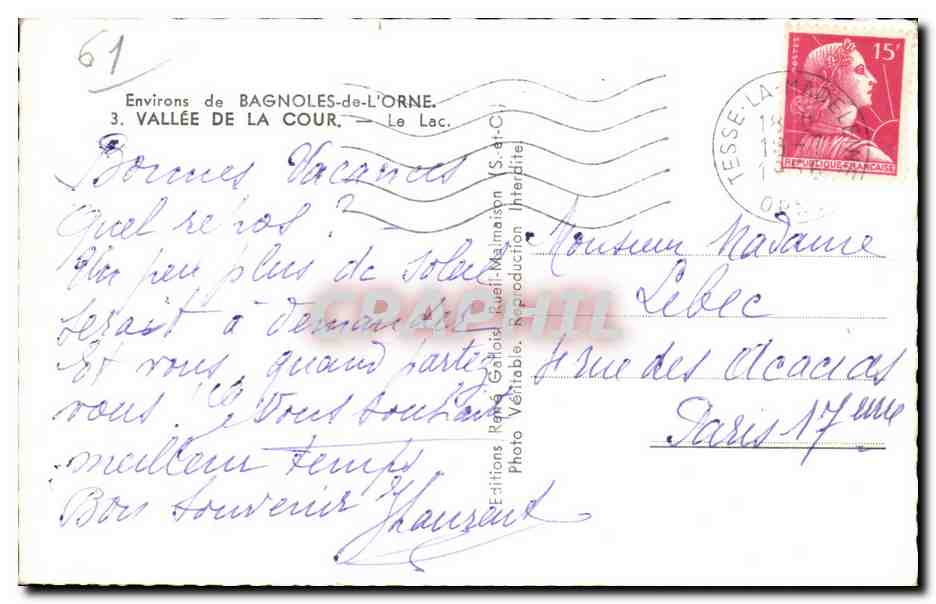 61
Environs de BAGNOLES-de-L'ORNE.
3. VALLÉE DE LA COUR. — Le Lac.
Bonnes Vacances
Quel repos ? -
Un peu plus de soleil
serait à demander
Et vous quand partez
vous ? Je vous souhaite
meilleur temps
Bon Souvenir
Editions René Gallois Rueil-Malmaison (S.-et-O.)
Photo Véritable. Reproduction Interdite
CRAPHIL
POSTES
15F
REPUBLIQUE FRANÇAISE
TESSE-LA-MADELEINE
Monsieur Madame
Lebec
4 rue des Acacias
Paris 17eme